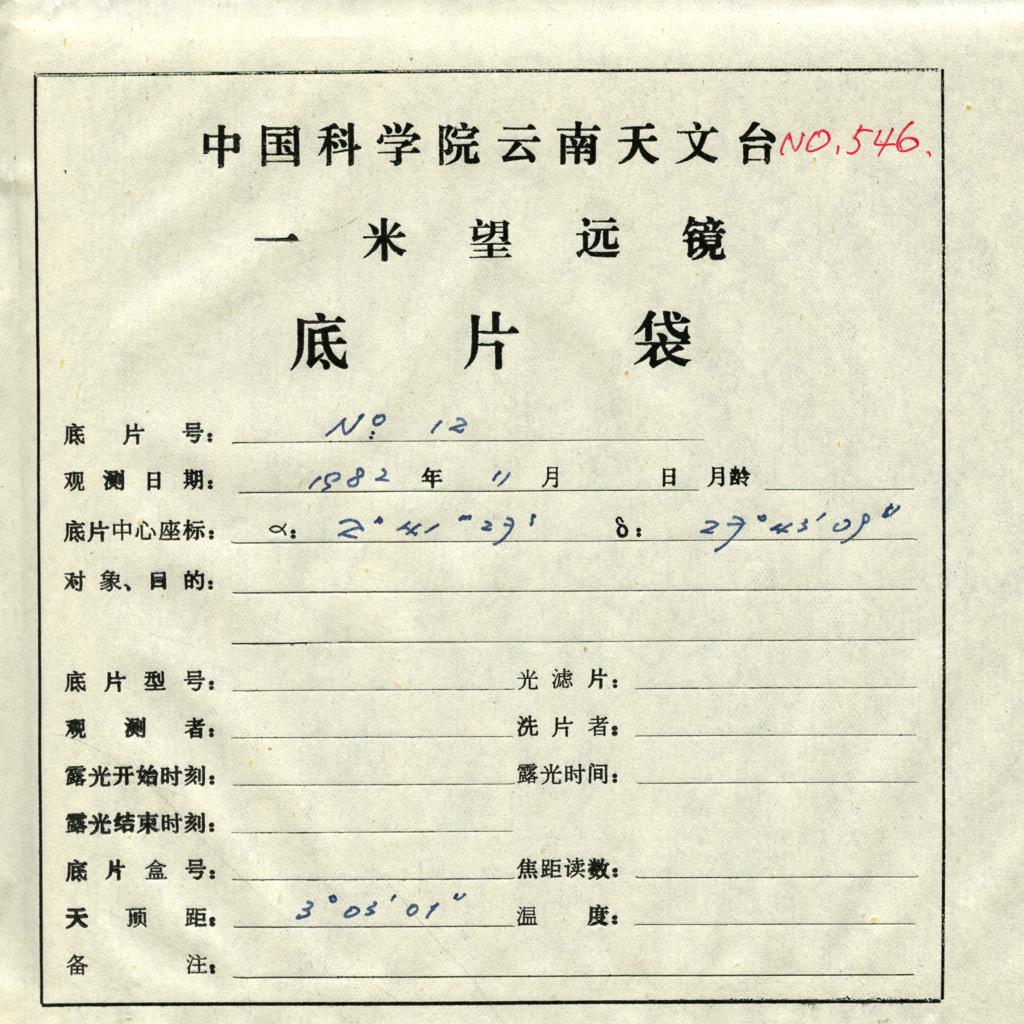 中国科学院云南天文台 NO.546.
一米望远镜
底片袋
底片号: Nº 12
观测日期: 1982 年 11 月 日 月龄
底片中心座标: α: 2° 41 m 27s δ: 27° 43′ 09″
对象、目的:
底片型号: 光滤片:
观测者: 洗片者:
露光开始时刻: 露光时间:
露光结束时刻:
底片盒号: 焦距读数:
天顶距: 3° 03′ 01″ 温度:
备注: